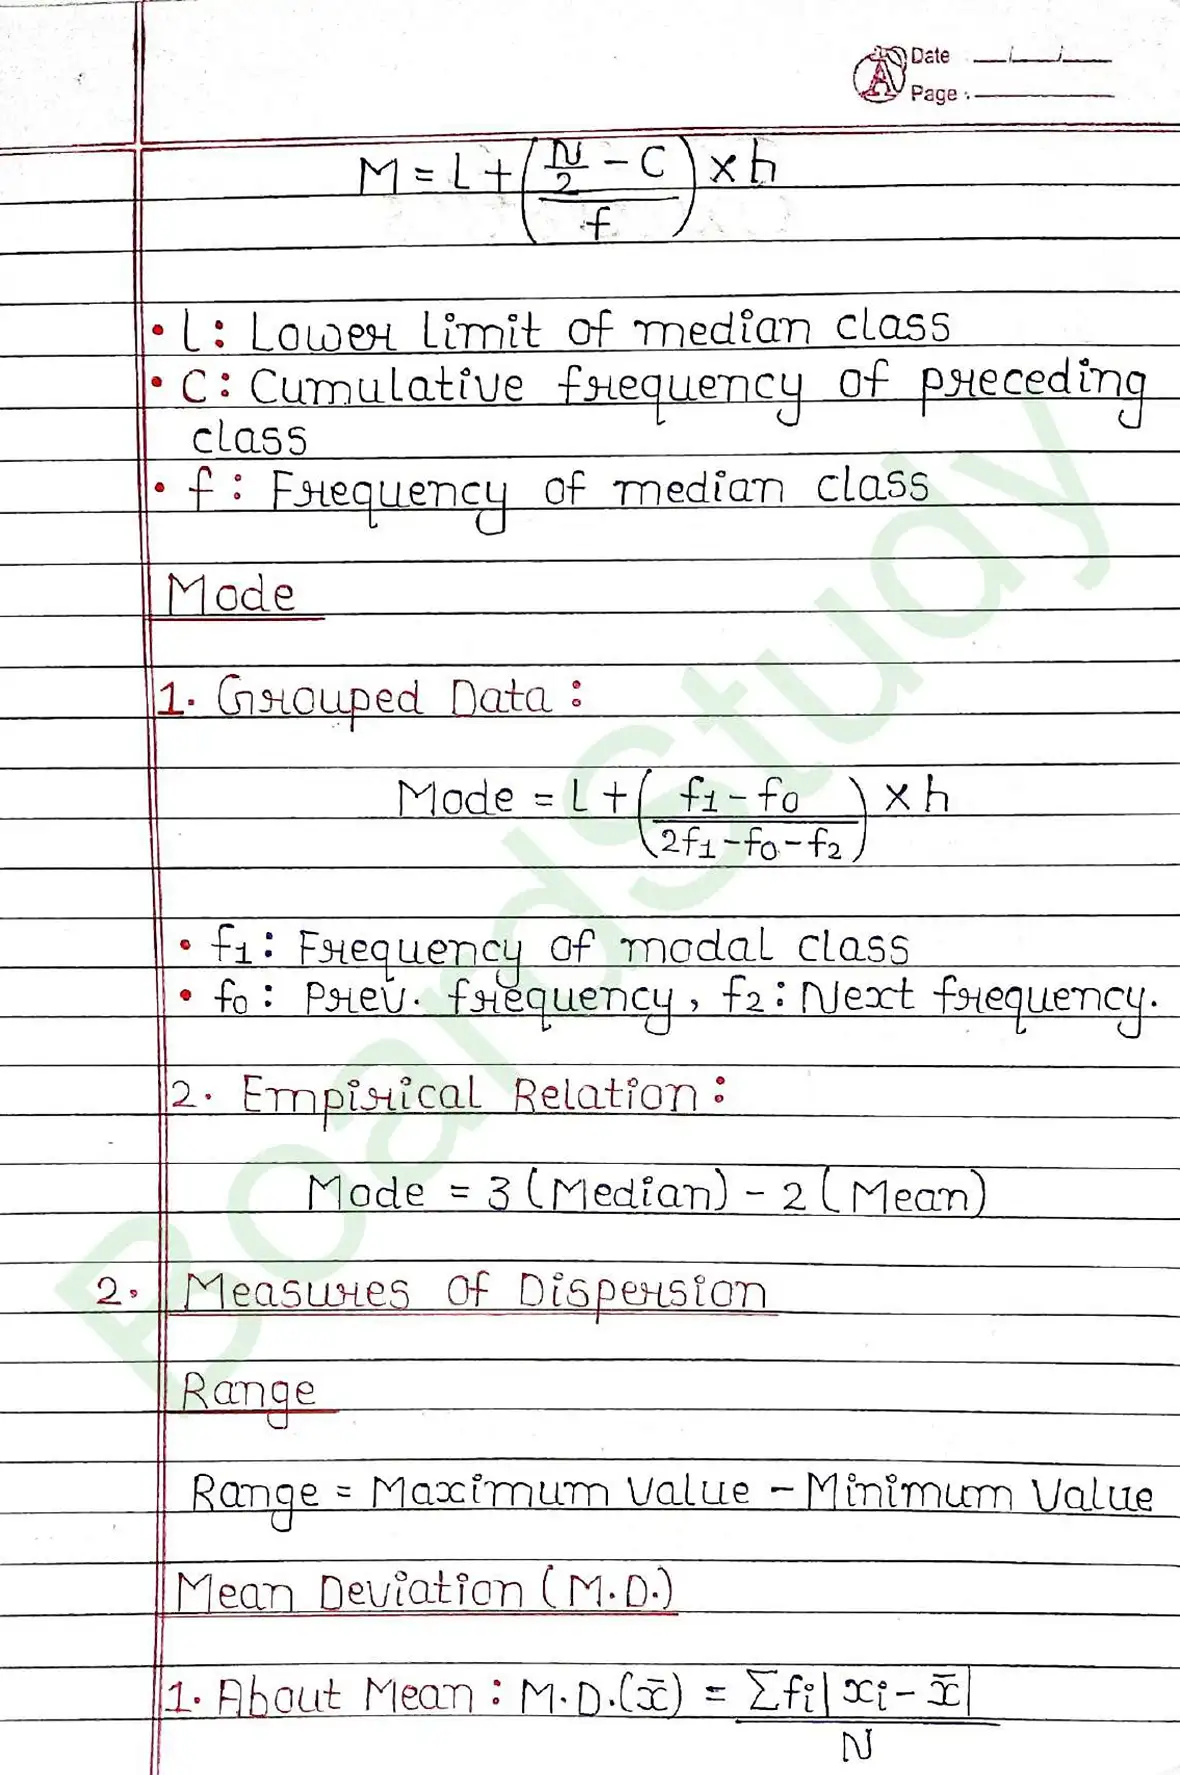 Date __/__/__
Page :
M = l + ((N/2 - C)/f) × h
• l : Lower limit of median class
• C : Cumulative frequency of preceding
class
• f : Frequency of median class
Mode
1. Grouped Data :
Mode = l + ((f₁ - f₀)/(2f₁ - f₀ - f₂)) × h
• f₁ : Frequency of modal class
• f₀ : Prev. frequency, f₂ : Next frequency.
2. Empirical Relation :
Mode = 3 (Median) - 2 (Mean)
2. Measures of Dispersion
Range
Range = Maximum Value - Minimum Value
Mean Deviation (M.D.)
1. About Mean : M.D.(x̄) = Σfᵢ|xᵢ - x̄| / N
BoardStudy